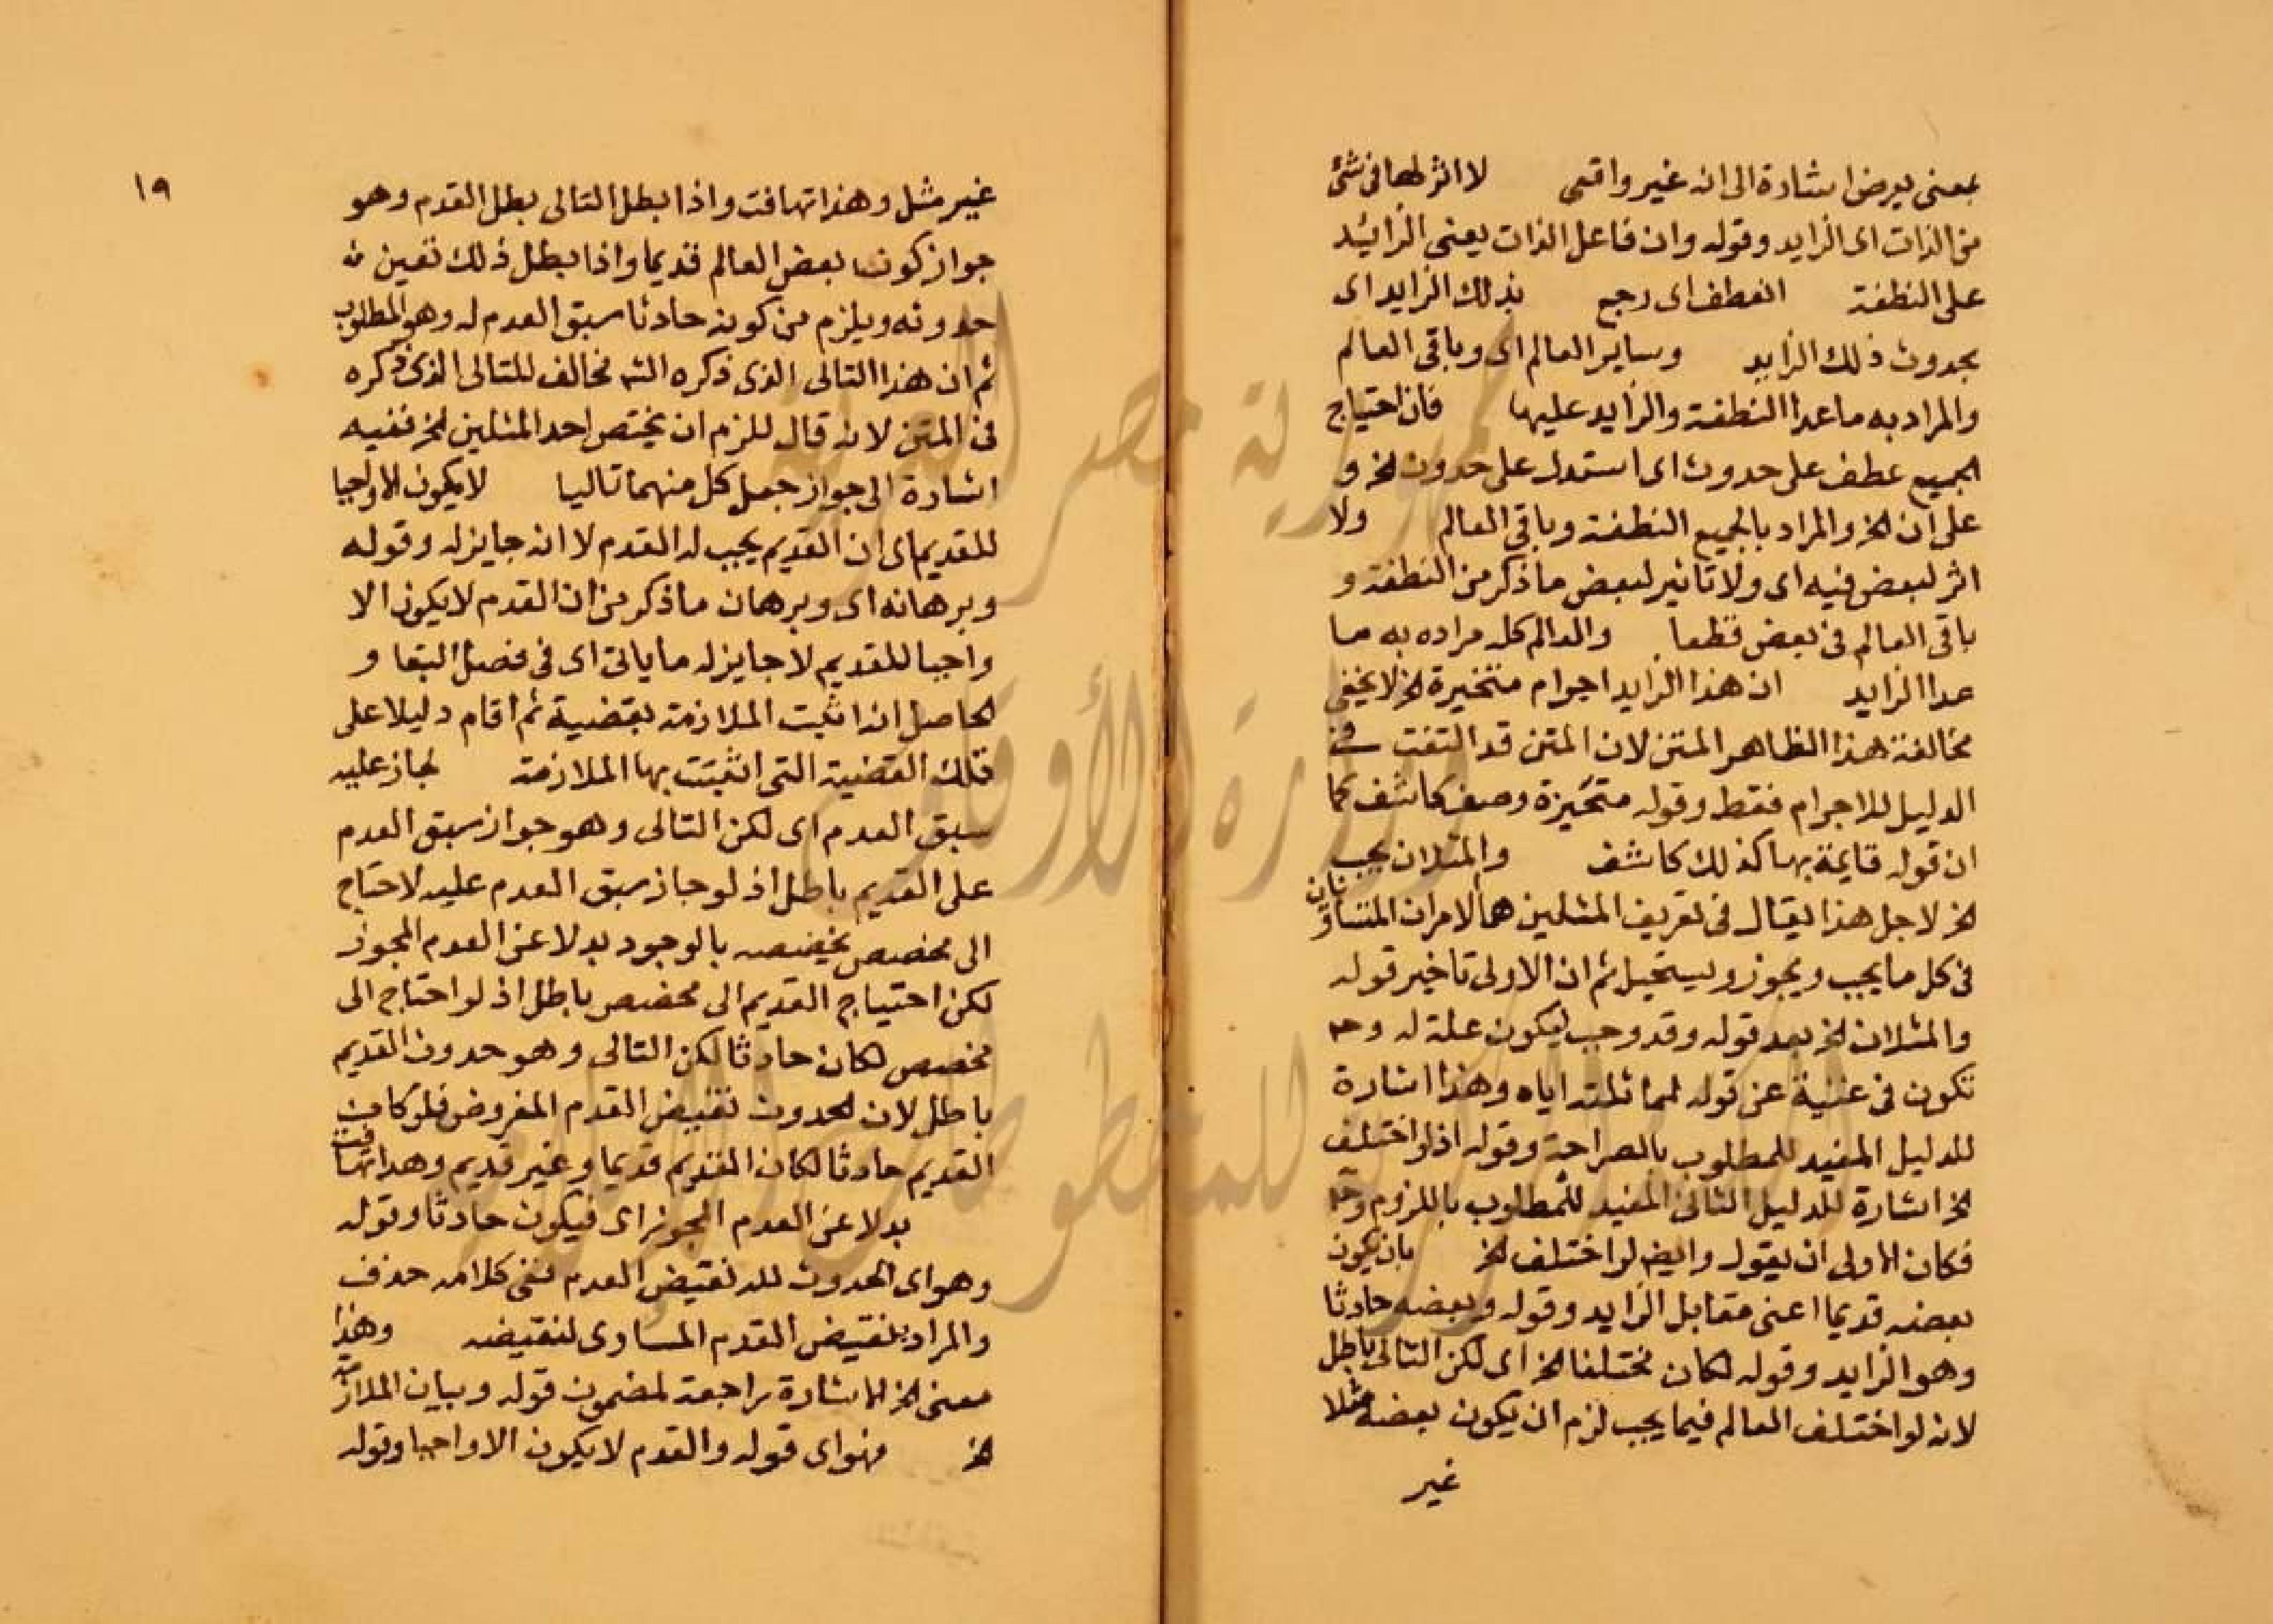 بمعنى يعرض اشارة الى انه غير واقعى لا اثر لها فى شئ
من الذات اى الزايد وقوله وان فاعل الذات يعنى الزائد
على النطفة انعطف اى رجع بذلك الزايد اى
بحدوث ذلك الزايد وساير العالم اى وباقى العالم
والمراد به ماعدا النطفة والزايد عليها فان احتياج
الجميع عطف على حدوث اى استدل على حدوث الخ و
على ان الخ والمراد بالجميع النطفة وباقى العالم ولا
اثر لبعض فيه اى ولا تاثير لبعض ما ذكر من النطفة و
باقى العالم فى بعض قطعا والعالم كله مراده به ما
عدا الزايد ان هذا الزايد اجرام متحيزة الخ لا يخفى
مخالفة هذا الظاهر المتن لان المتن قد التفت فى
الدليل للاجرام فقط وقوله متحيزة وصف كاشف كما
ان قوله قايمة بها كذلك كاشف والمثلان يجب
الخ لاجل هذا يقال فى تعريف المثلين هما الامران المتساويان
فى كل ما يجب ويجوز ويستحيل ثم ان الاولى تاخير قوله
والمثلان الخ بعد قوله وقد وجب ليكون علة له وح
تكون فى غنية عن قوله لمماثلته اياه وهذا اشارة
للدليل المفيد للمطلوب بالصراحة وقوله اذ لو اختلف
الخ اشارة للدليل الثانى المفيد للمطلوب باللزوم وح
فكان الاولى ان يقول وايضا لو اختلف الخ بان يكون
بعضه قديما اعنى مقابل الزايد وقوله وبعضه حادثا
وهو الزايد وقوله لكان مختلفا الخ اى لكن التالى باطل
لانه لو اختلف العالم فيما يجب لزم ان يكون بعضه مثلا
غير
١٩
غير مثل وهذا تهافت واذا بطل التالى بطل القدم وهو
جواز كون بعض العالم قديما واذا بطل ذلك تعين
حدوثه ويلزم من كونه حادثا سبق العدم له وهو المطلوب
ثم ان هذا التالى الذى ذكره الش مخالف للتالى الذى ذكره
فى المتن لانه قال للزم ان يختص احد المثلين الخ ففيه
اشارة الى جواز جعل كل منهما تاليا لا يكون الا واجبا
للقديم اى ان القديم يجب له القدم لا انه جايز له وقوله
وبرهانه اى وبرهان ما ذكر من ان القدم لا يكون الا
واجبا للقديم لا جايز له ما ياتى اى فى فصل البقا و
الحاصل انه اثبت الملازمة بقضية ثم اقام دليلا على
تلك القضية التى اثبتت بها الملازمة لجاز عليه
سبق العدم اى لكن التالى وهو جواز سبق العدم
على القديم باطل اذ لو جاز سبق العدم عليه لاحتاج
الى مخصص يخصصه بالوجود بدلا عن العدم المجوز
لكن احتياج القديم الى مخصص باطل اذ لو احتاج الى
مخصص لكان حادثا لكن التالى وهو حدوث القديم
باطل لان الحدوث نقيض القدم المفروض فلو كان
القديم حادثا لكان القديم قديما وغير قديم وهذا تهافت
بدلا عن العدم المجوز اى فيكون حادثا وقوله
وهو اى الحدوث نقيض العدم ففى كلامه حذف
والمراد بنقيض القدم المساوى لنقيضه وهذا
معنى الخ الاشارة راجعة لمضمون قوله وبيان الملازمة
الخ فهو اى قوله والقدم لا يكون الا واجبا وقوله